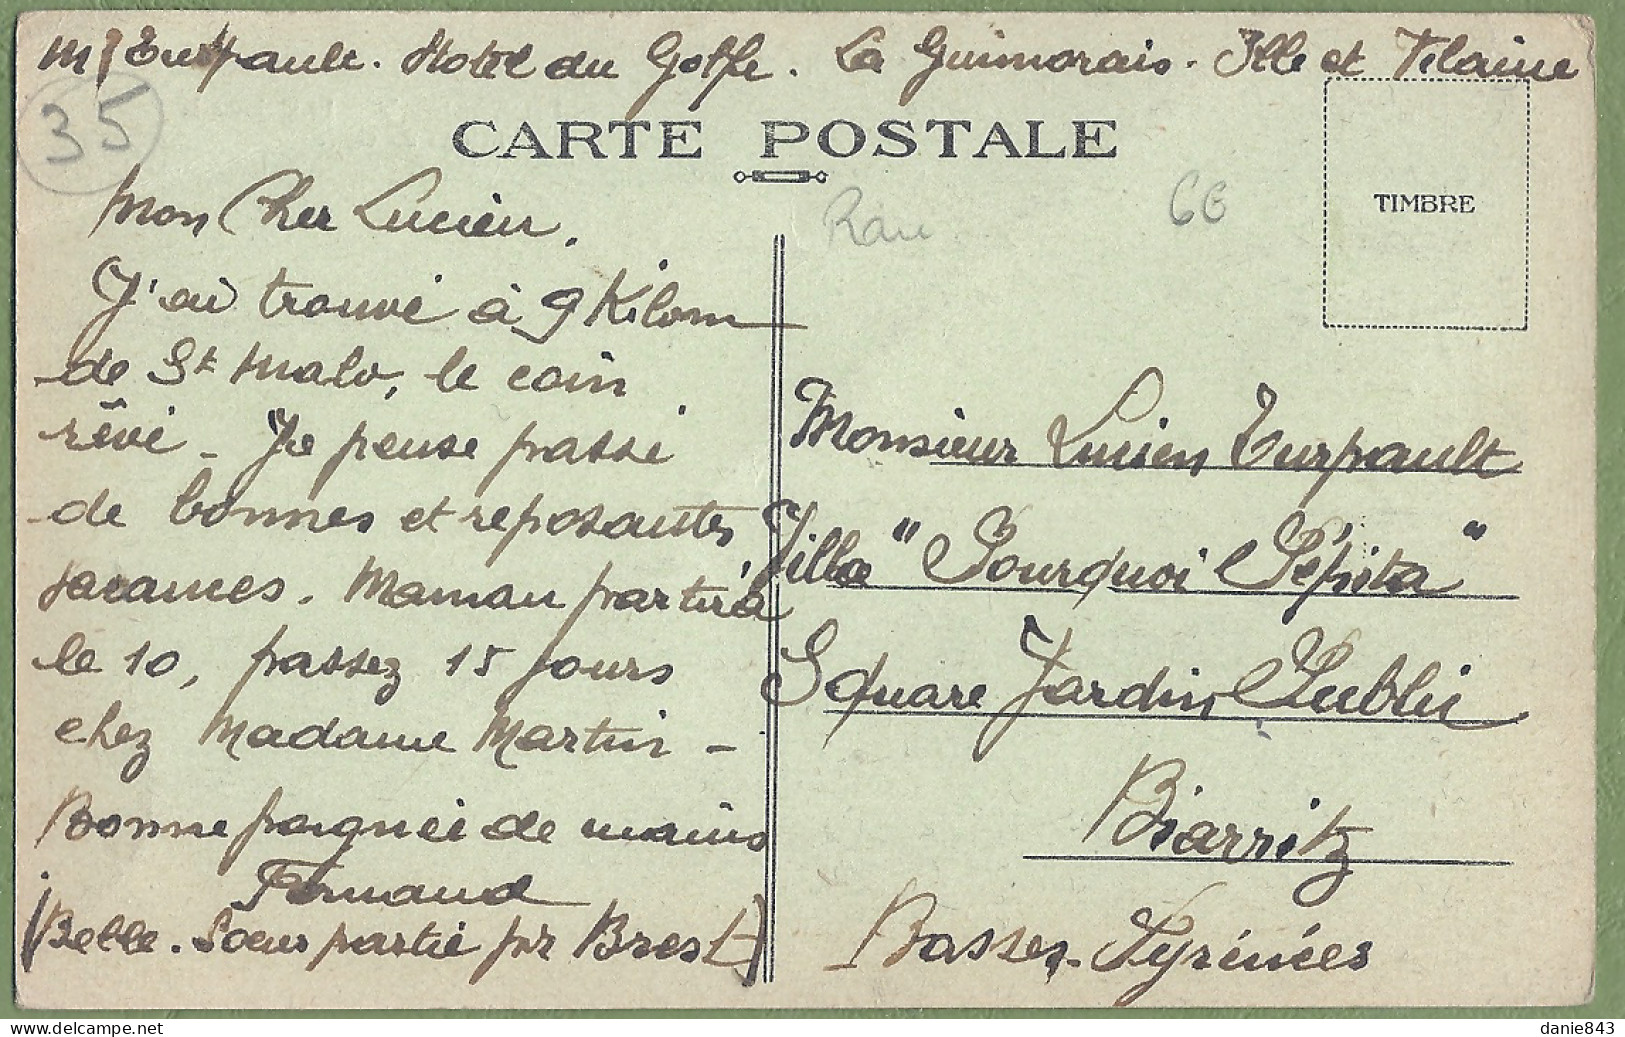 Mr Turpault. Hotel du Golfe. La Guimorais. Ille et Vilaine
35
CARTE POSTALE
66
TIMBRE
Mon Cher Lucien.
J'ai trouvé à 9 Kilom
de St Malo, le coin
rêvé - Je pense passé
de bonnes et reposantes
vacances. Maman partira
le 10, passez 15 jours
chez Madame Martin -
Bonne poignée de mains
Fernand
(Belle. Soeur partie pr Brest)
Monsieur Lucien Turpault
Villa "Pourquoi Pépita"
Square Jardin Public
Biarritz
Basses-Pyrénées
danie843